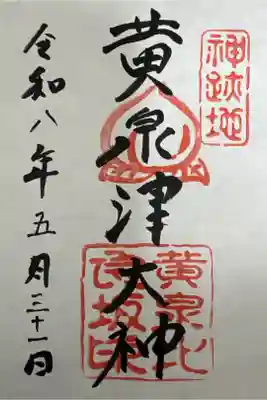 神跡地
黄泉津大神
黄泉比
良坂印
令和八年五月三十一日